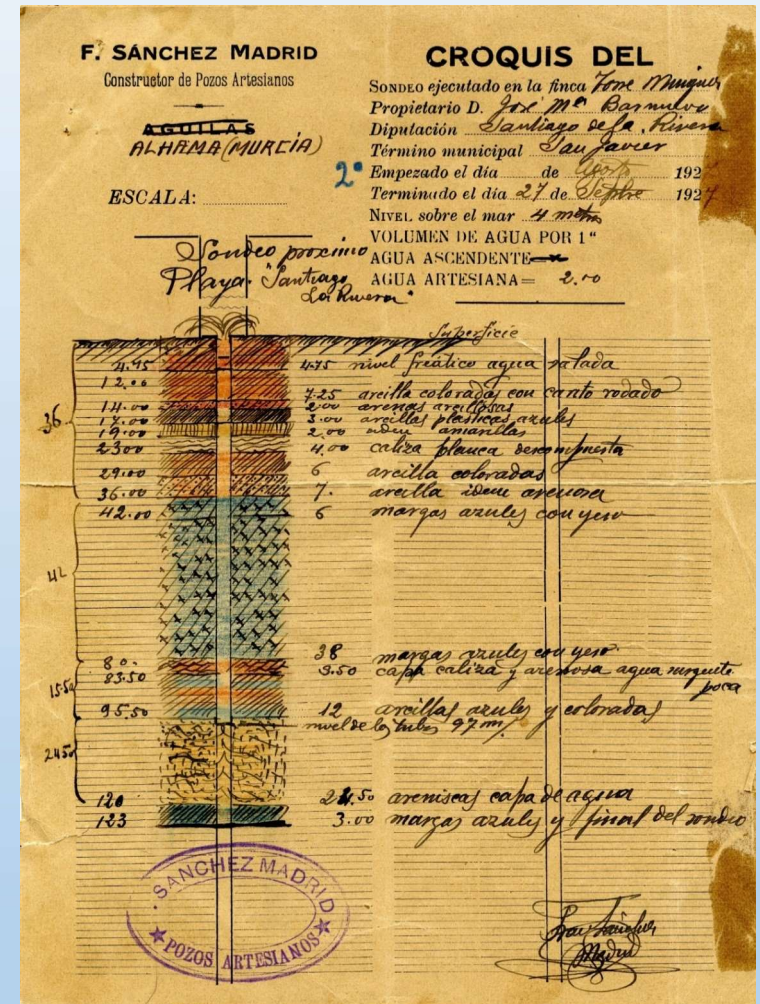 F. SÁNCHEZ MADRID
Constructor de Pozos Artesianos
AGUILAS
ALHAMA (MURCIA)
ESCALA:
CROQUIS DEL
SONDEO ejecutado en la finca Torre Minguez
Propietario D. José Mª Barnuevo
Diputación Santiago de la Rivera
Término municipal San Javier
2º Empezado el día de Agosto 1927
Terminado el día 27 de Septbre 1927
NIVEL sobre el mar 4 metros
VOLUMEN DE AGUA POR 1"
AGUA ASCENDENTE
AGUA ARTESIANA = 2.00
Sondeo proximo
Playa "Santiago
La Rivera"
Superficie
4.75 4.75 nivel freático agua salada
12.00 7.25 arcilla coloradas con canto rodado
14.00 2.00 arenas arcillosas
17.00 3.00 arcillas plasticas azules
19.00 2.00 idem amarillas
23.00 4.00 caliza blanca descompuesta
29.00 6 arcilla coloradas
36.00 7. arcilla idem arenosa
42.00 6 margas azules con yeso
36
42
15.50
24.50
38 margas azules con yeso
80. 83.50 3.50 capa caliza y arenosa agua surgente
poca
95.50 12 arcillas azules y coloradas
nivel de los tubos 97 m/
120 24.50 areniscas capa de agua
123 3.00 margas azules y final del sondeo
SANCHEZ MADRID
POZOS ARTESIANOS
Fran Sánchez
Madrid